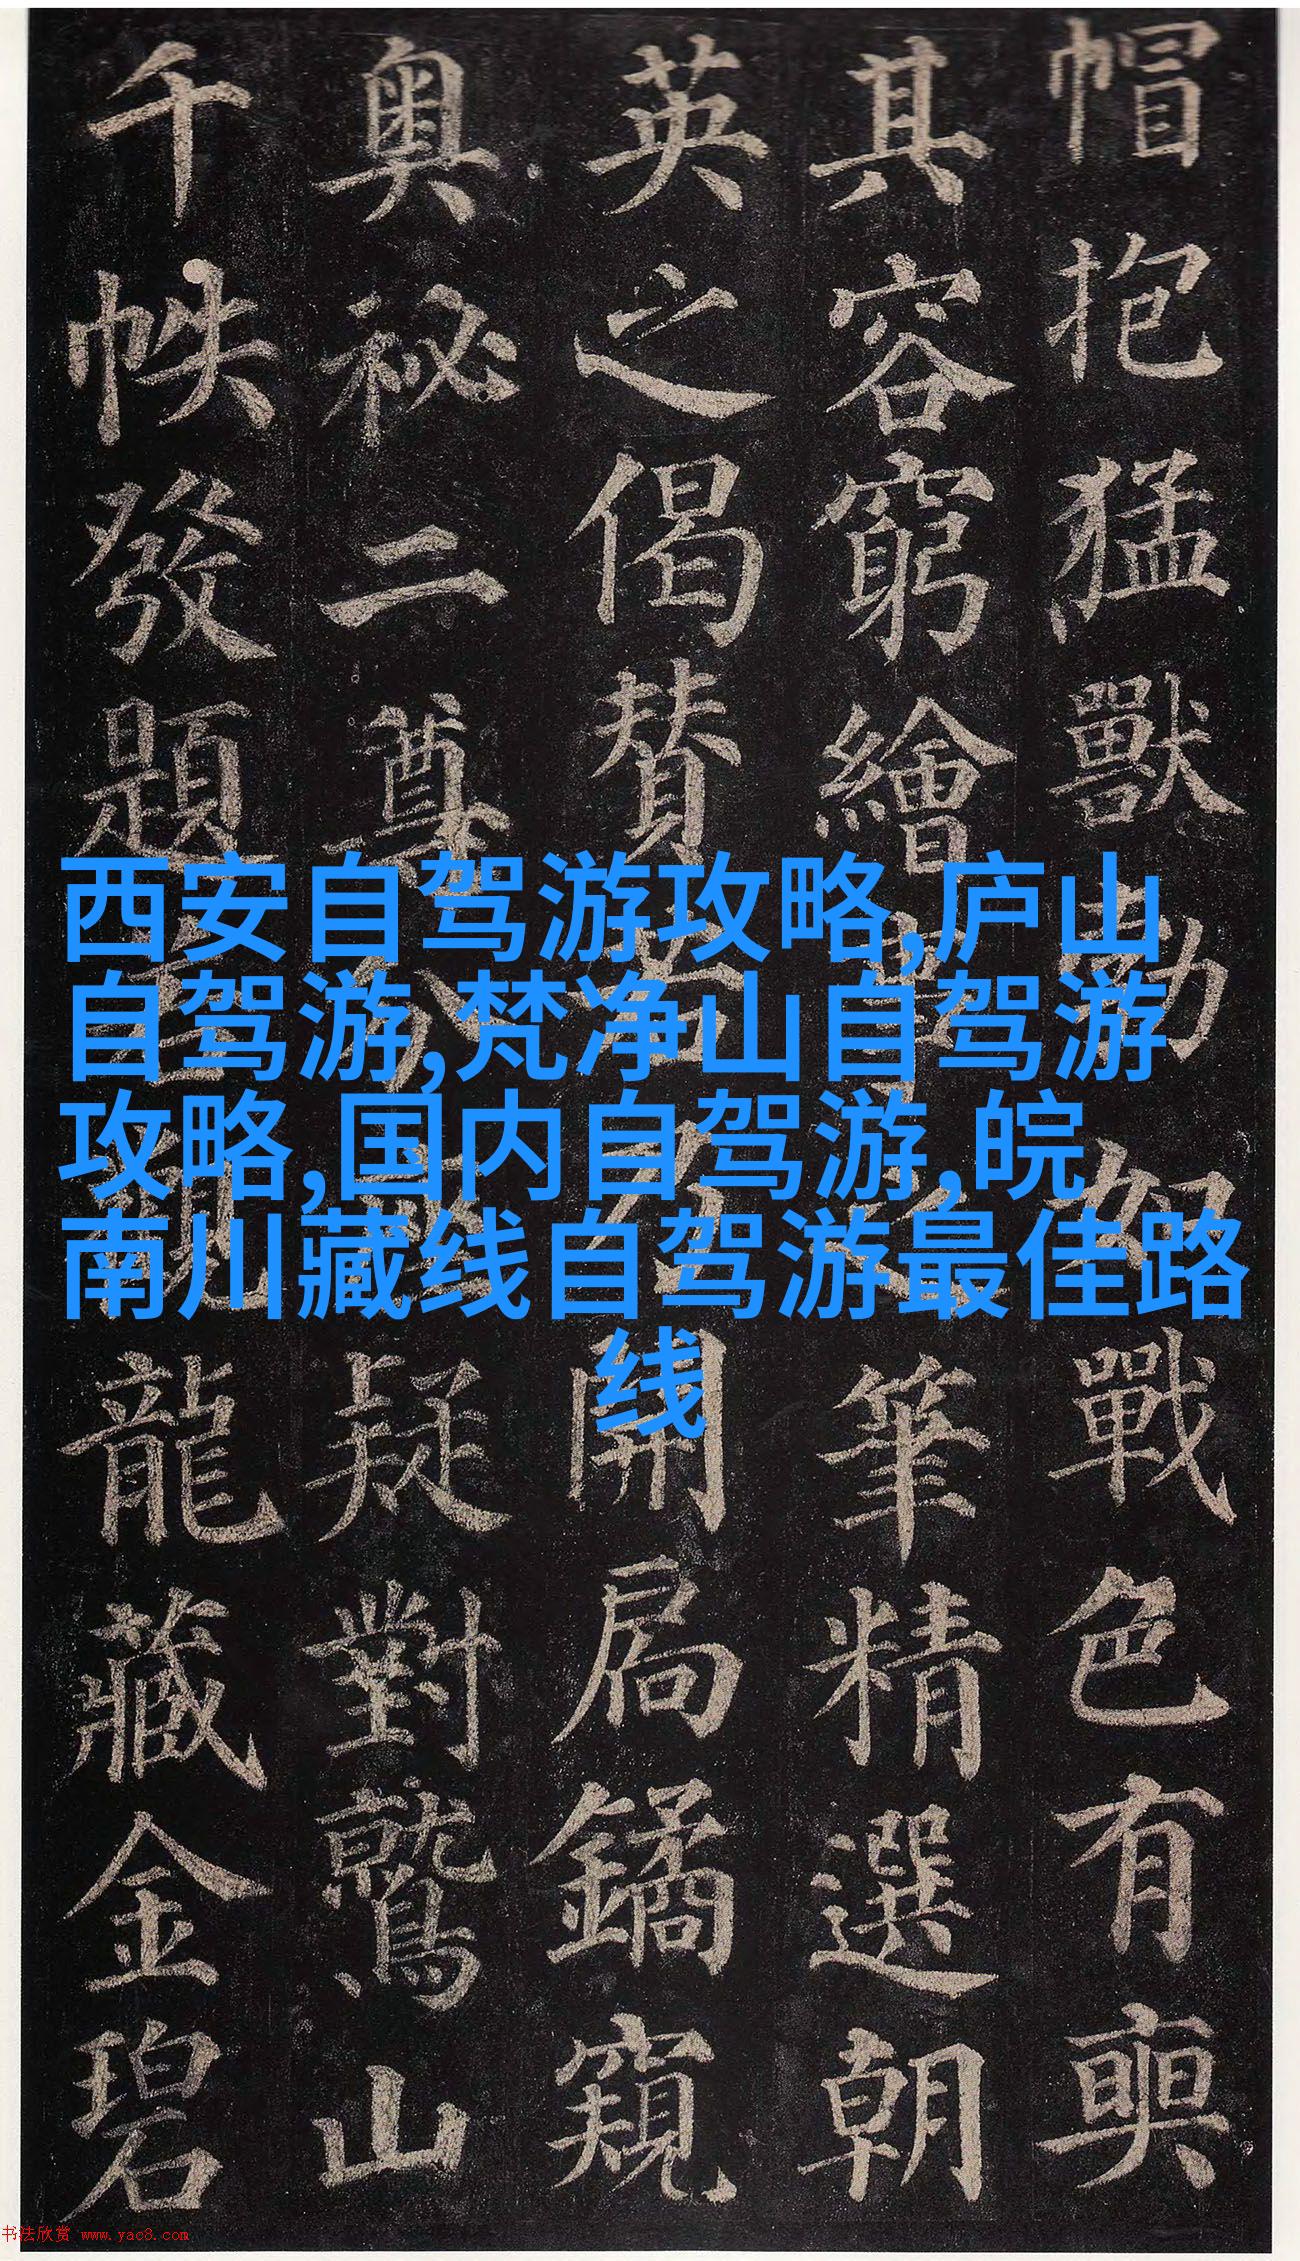 帽抱猛獸勃如戰色有奭
其容窮繪事之筆精選朝
英之偈賛若乃開扃鐍窺
奥祕二尊分座疑對鷲山
千帙發題若觀龍藏金碧
西安自驾游攻略,庐山
自驾游,梵净山自驾游
攻略,国内自驾游,皖
南川藏线自驾游最佳路
线
书法欣赏 www.yac8.com